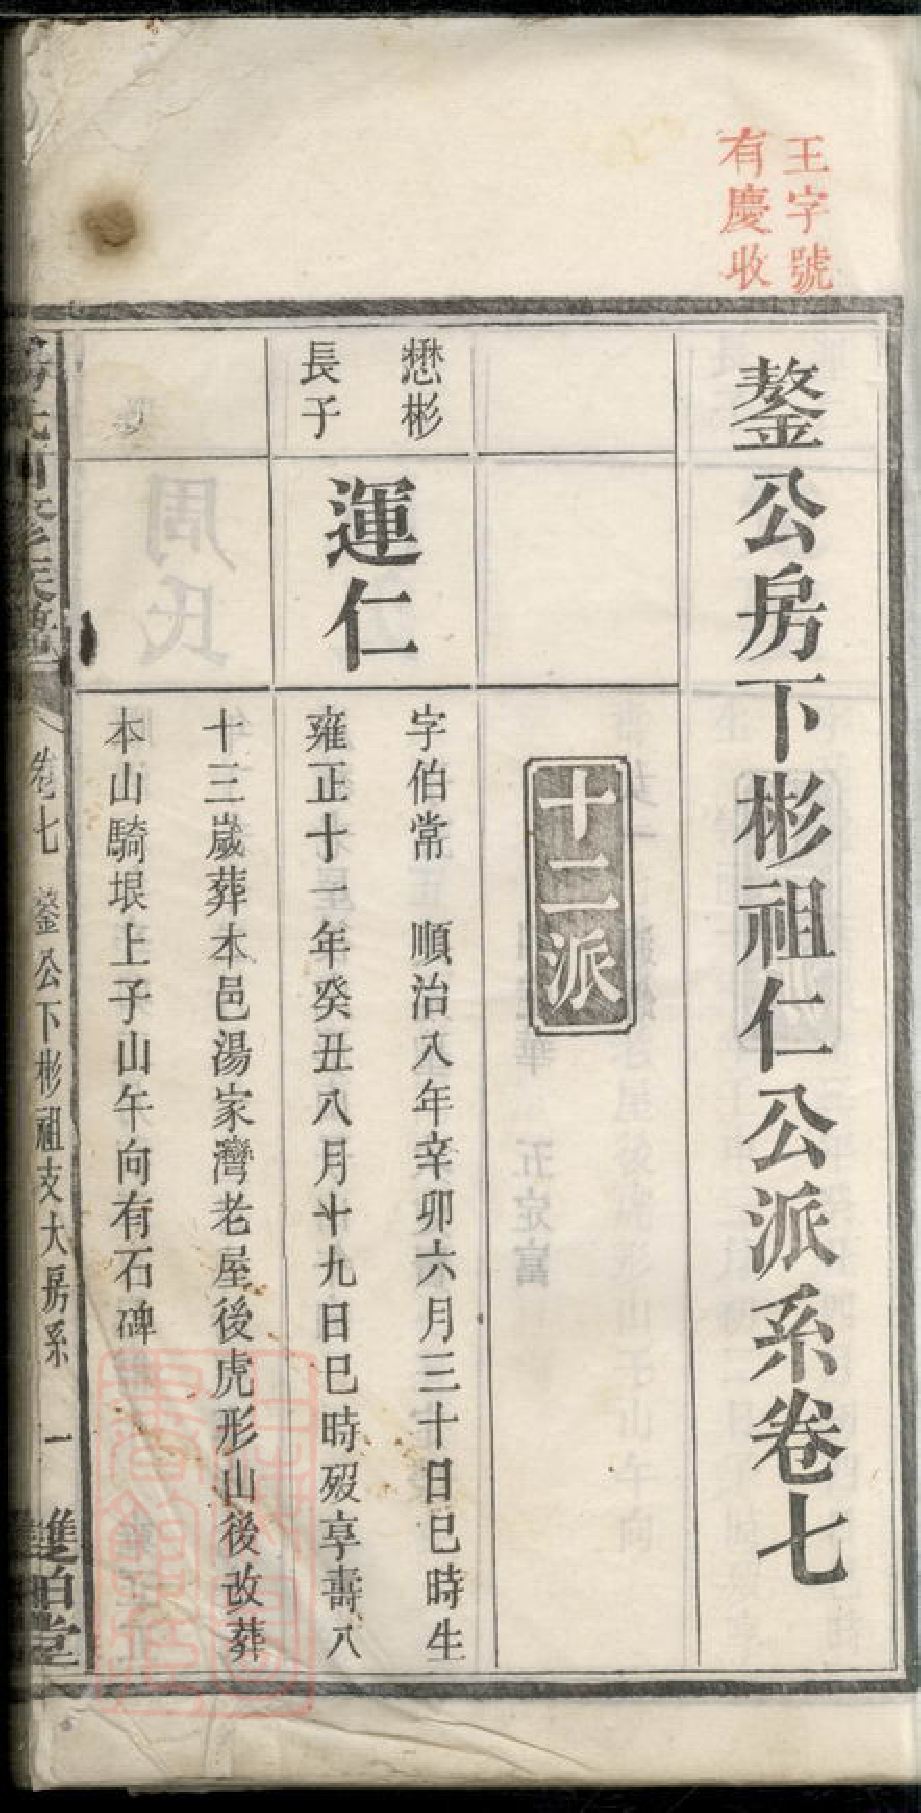 王字號
有慶收
鏊公房下彬祖仁公派系卷七
十二派
懋彬
長子
運仁
字伯常 順治八年辛卯六月三十日巳時生
雍正十一年癸丑八月十九日巳時歿享壽八
十三歲葬本邑湯家灣老屋後虎形山後改葬
本山騎垠上子山午向有石碑
卷七 鏊公下彬祖支大房系 一 雙柏堂